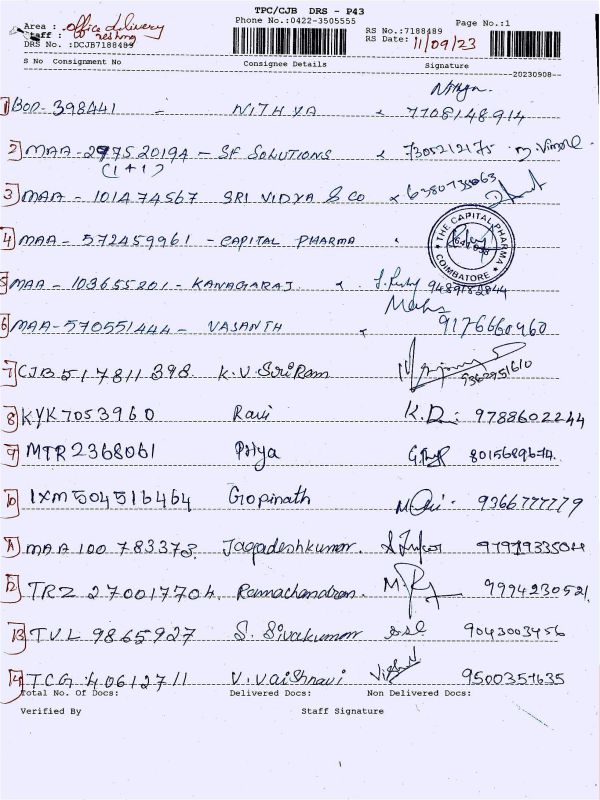 TPC/CJB DRS - P43
Phone No.:0422-3505555
Page No.:1
Area : office delivery
Staff : reshma
DRS No. :DCJB7188489
RS No.:7188489
RS Date: 11/09/23
S No Consignment No Consignee Details Signature
20230908
1 BOD-398441 - NITHYA 7708148914
2 MAA-297520194 - SF SOLUTIONS 7305212175
(1+1)
3 MAA - 101474567 SRI VIDYA & CO
4 MAA - 572459961 - CAPITAL PHARMA
THE CAPITAL PHARMA
COIMBATORE
5 MAA - 103655201 - KANAGARAJ 9489182844
6 MAA-570551444 - VASANTH 9176660460
7 CJB517811398 K.V. SriRam 9362951610
8 KYK7053960 Ravi 9788602244
9 MTR2368061 Priya 8015689674
10 IXM504516464 Gopinath 9366777779
11 MAA100783373. Jagadeshkumar.
12 TRZ 270017704. Ramachandran. 9994230521
13 TVL 9865927 S. Sivakumar 9043003456
14 TCG 40612711 V. Vaishnavi 9500357635
Total No. Of Docs: Delivered Docs: Non Delivered Docs:
Verified By Staff Signature